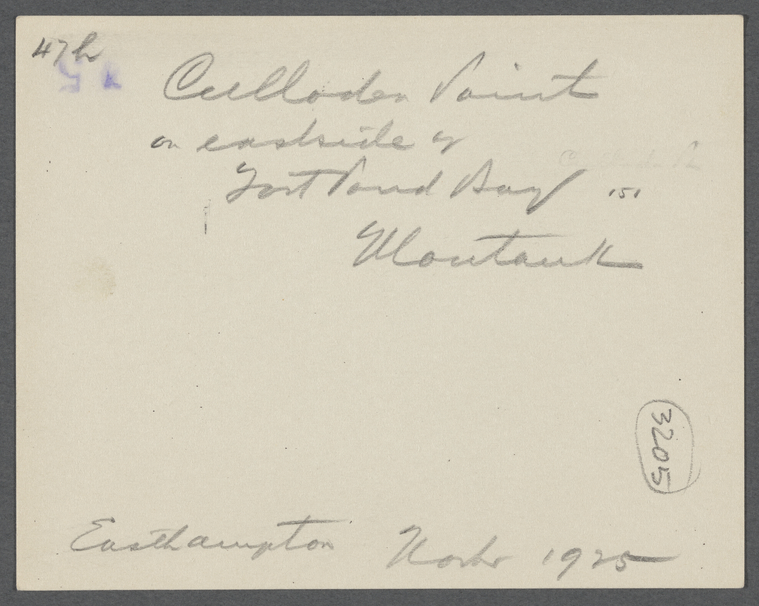 47h
Culloden Point
on eastside of
Fort Pond Bay 151
Montauk
3205
Easthampton 1925